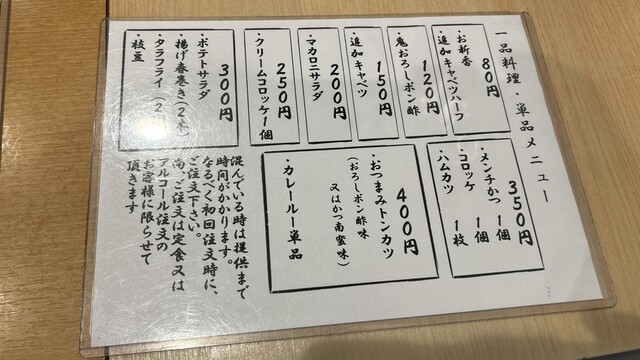 一品料理・単品メニュー
80円
・お新香
・追加キャベツハーフ
120円
・鬼おろしポン酢
150円
・追加キャベツ
200円
・マカロニサラダ
250円
・クリームコロッケ1個
300円
・ポテトサラダ
・揚げ春巻き(2本)
・タラフライ(2
・枝豆
350円
・メンチかつ 1個
・コロッケ 1個
・ハムカツ 1枚
400円
・おつまみトンカツ
(おろしポン酢味
又はかつ南蛮味)
・カレールー単品
混んでいる時は提供まで
時間がかかります。
なるべく初回注文時に、
ご注文下さい。
尚、ご注文は定食又は
アルコール注文の
お客様に限らせて
頂きます